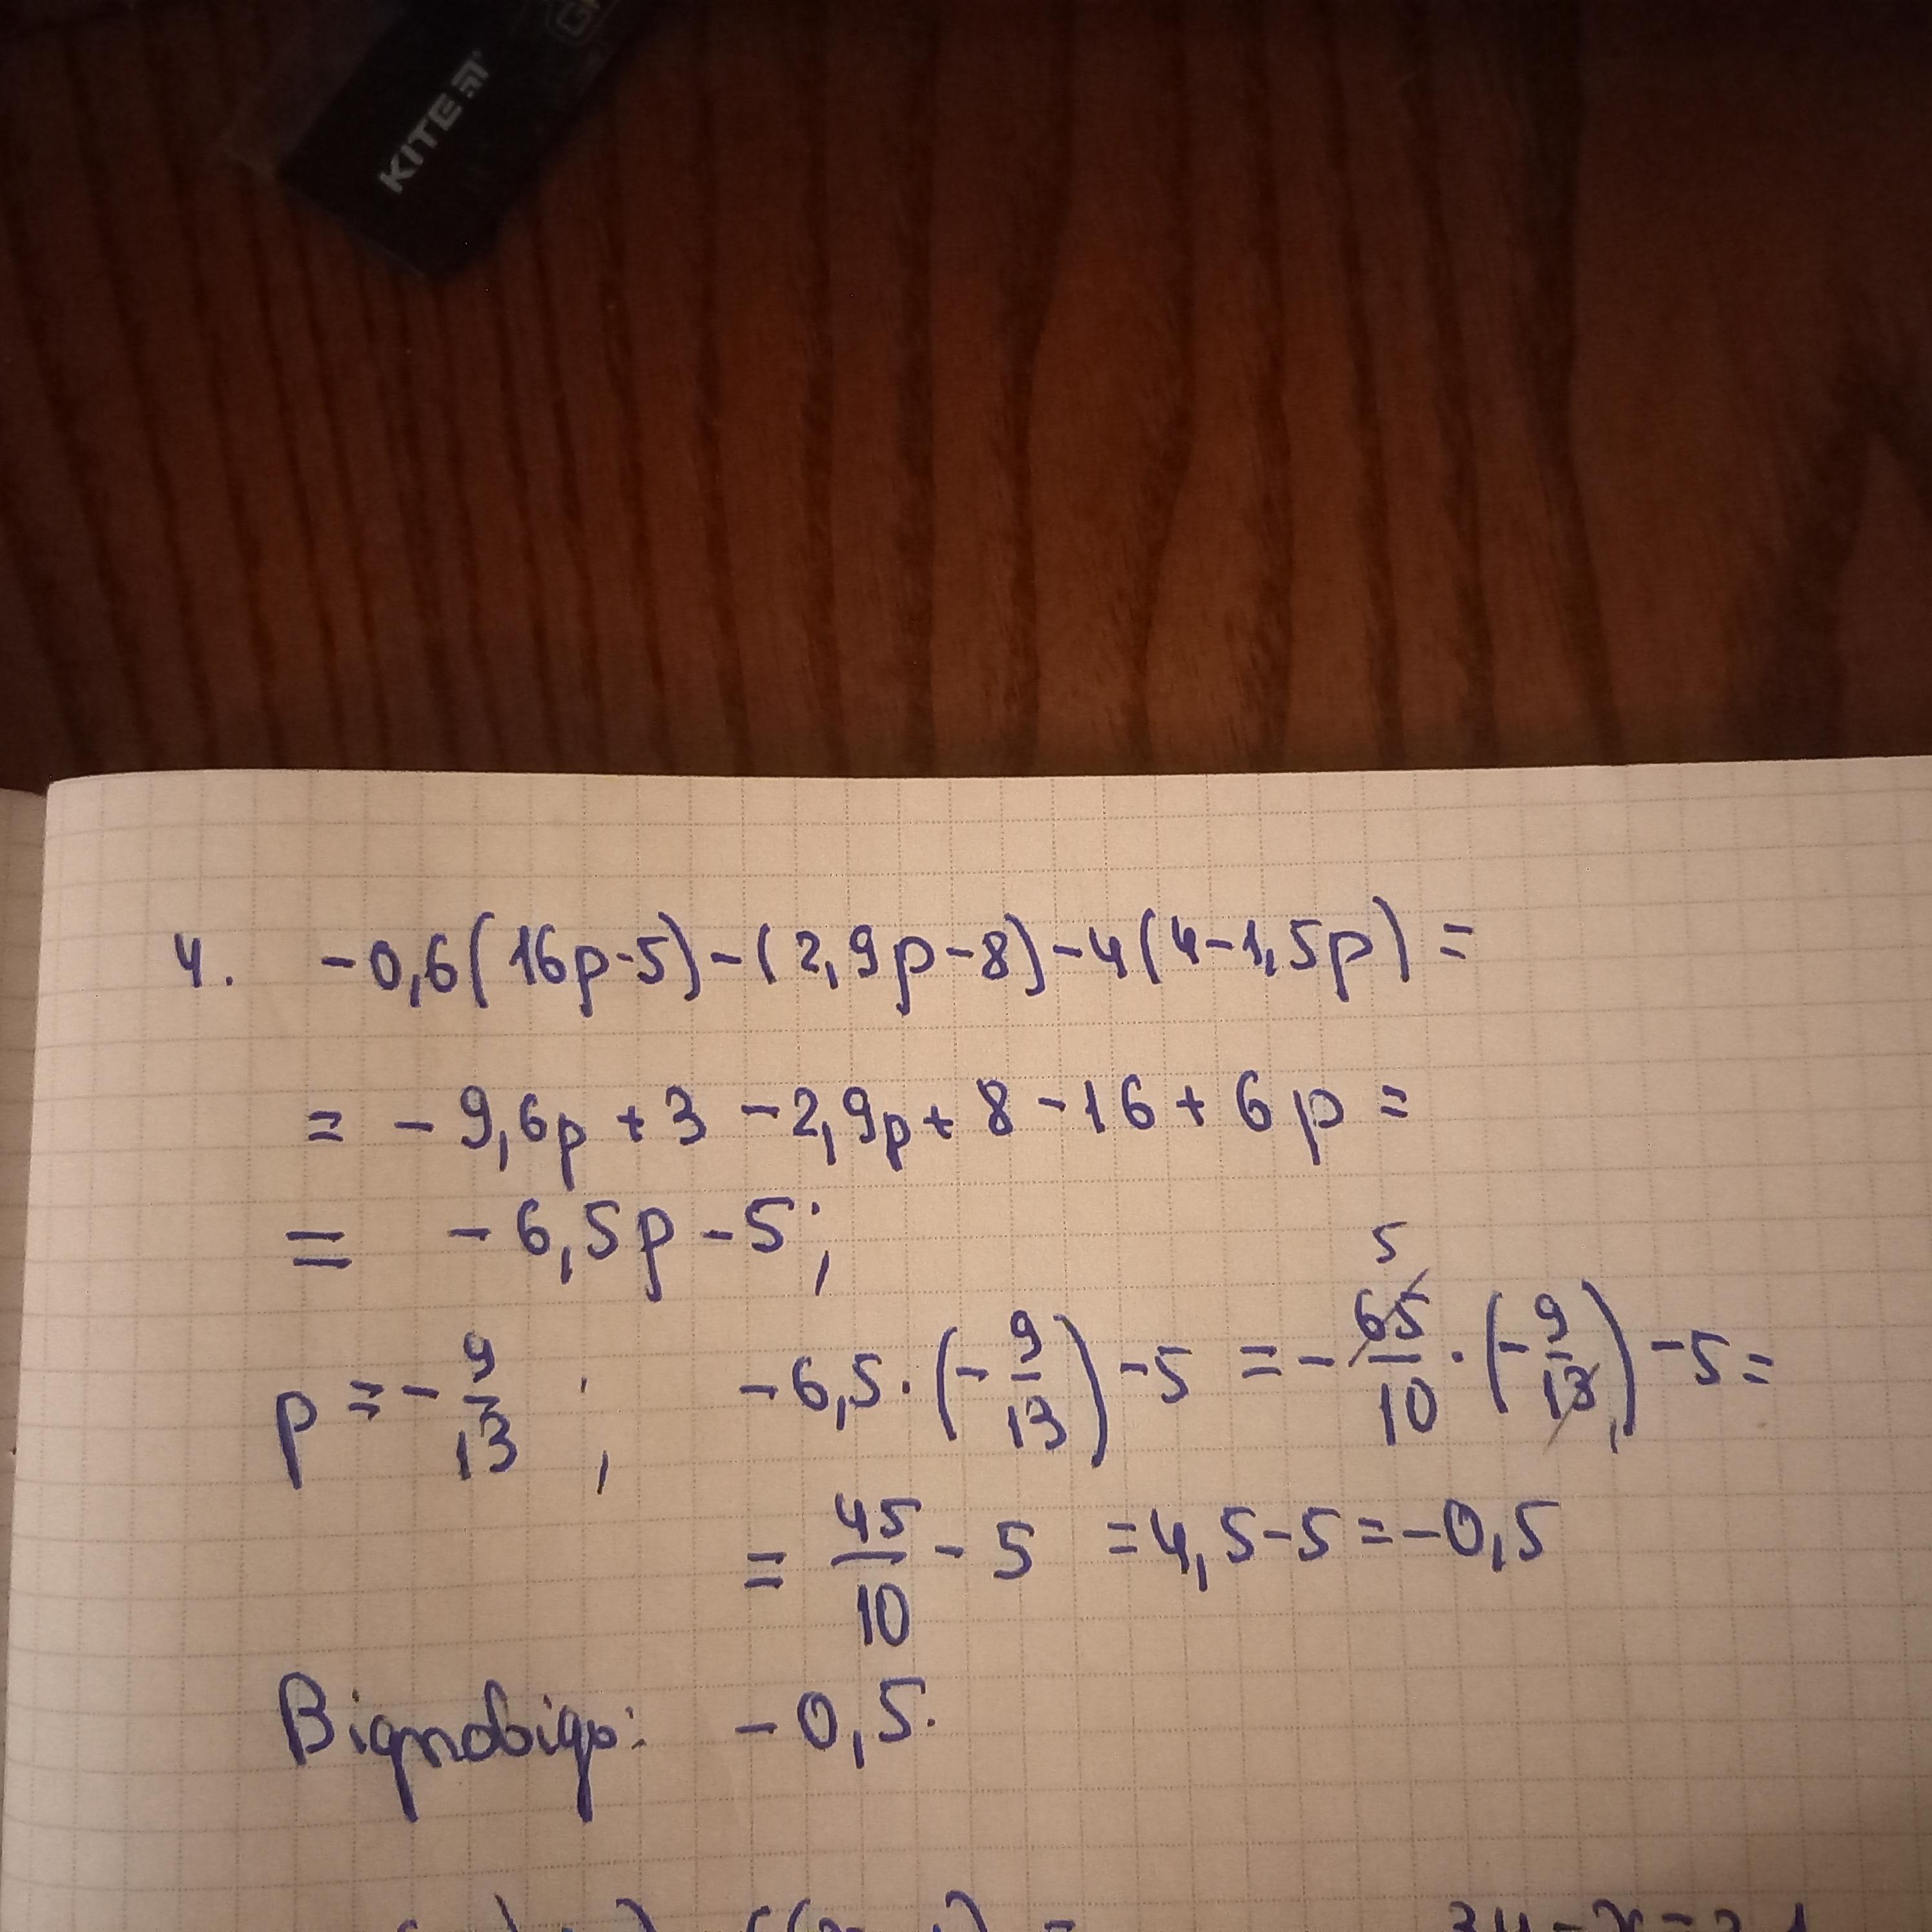 KITE
4. -0,6(16p-5)-(2,9p-8)-4(4-1,5p)=
= -9,6p+3-2,9p+8-16+6p=
= -6,5p-5;
p=-9/13; -6,5·(-9/13)-5=-65/10·(-9/13)-5=
5
1
= 45/10-5=4,5-5=-0,5
Відповідь: -0,5.